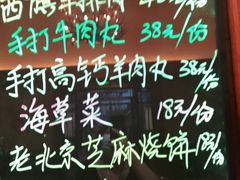 手打牛肉丸 38元/份
手打高钙羊肉丸 38元/份
海草菜 18元/份
老北京芝麻烧饼 18元/份